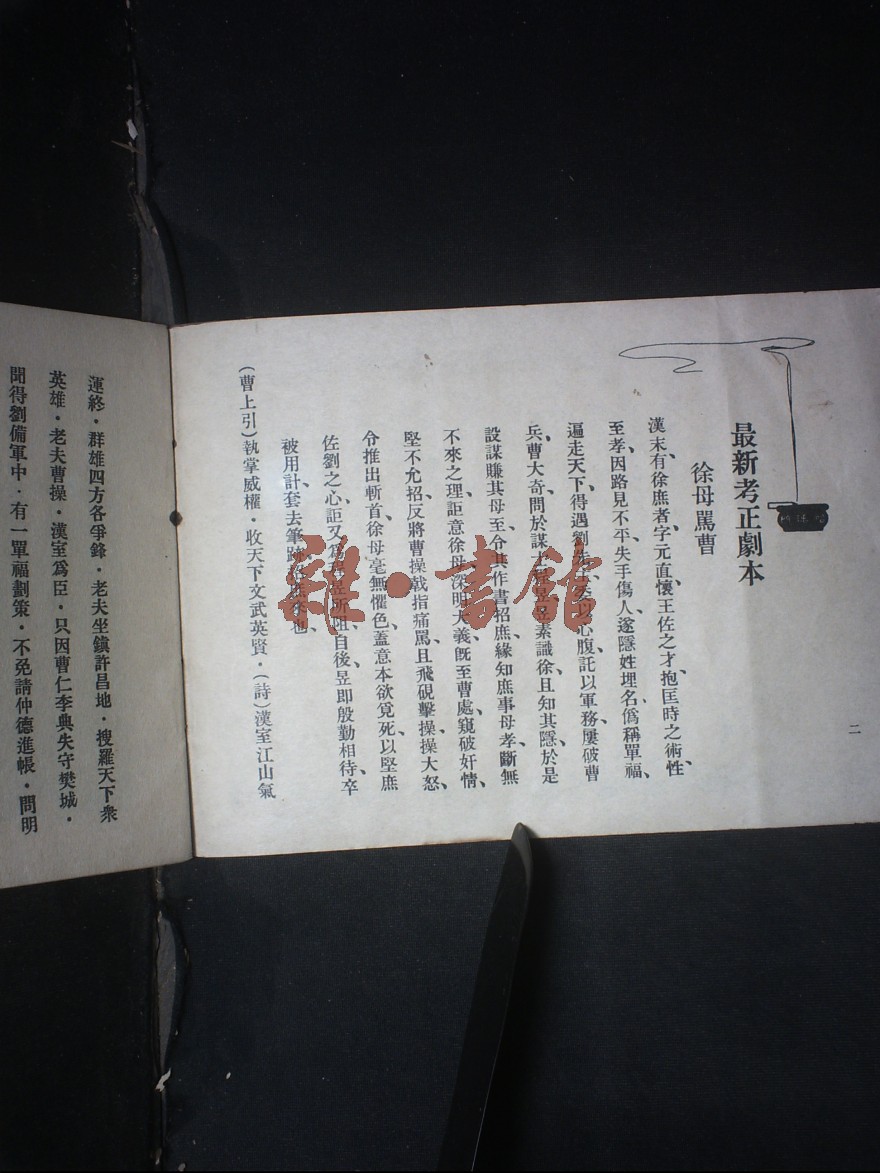 最新考正劇本
徐母罵曹
漢末有徐庶者字元直懷王佐之才抱匡時之術性、
至孝因路見不平失手傷人遂隱姓埋名僞稱單福、
遍走天下、得遇劉以心腹託以軍務屢破曹
兵、曹大奇問於謀士昱素識徐且知其隱於是
設謀賺其母至、令其作書招庶緣知庶事母孝、斷無
不來之理、詎意徐母深明大義旣至曹處、窺破奸情、
堅不允招、反將曹操戟指痛罵、且飛硯擊操、操大怒、
令推出斬首、徐母毫無懼色、蓋意本欲覓死、以堅庶
佐劉之心、詎又爲昱所阻、自後昱即殷勤相待、卒
被用計套去筆跡來也、
(曹上引)執掌威權・收天下文武英賢・(詩)漢室江山氣
二
運終・群雄四方各爭鋒・老夫坐鎮許昌地・搜羅天下衆
英雄・老夫曹操・漢室爲臣・只因曹仁李典失守樊城・
聞得劉備軍中・有一單福劃策・不免請仲德進帳・問明
雜·書館